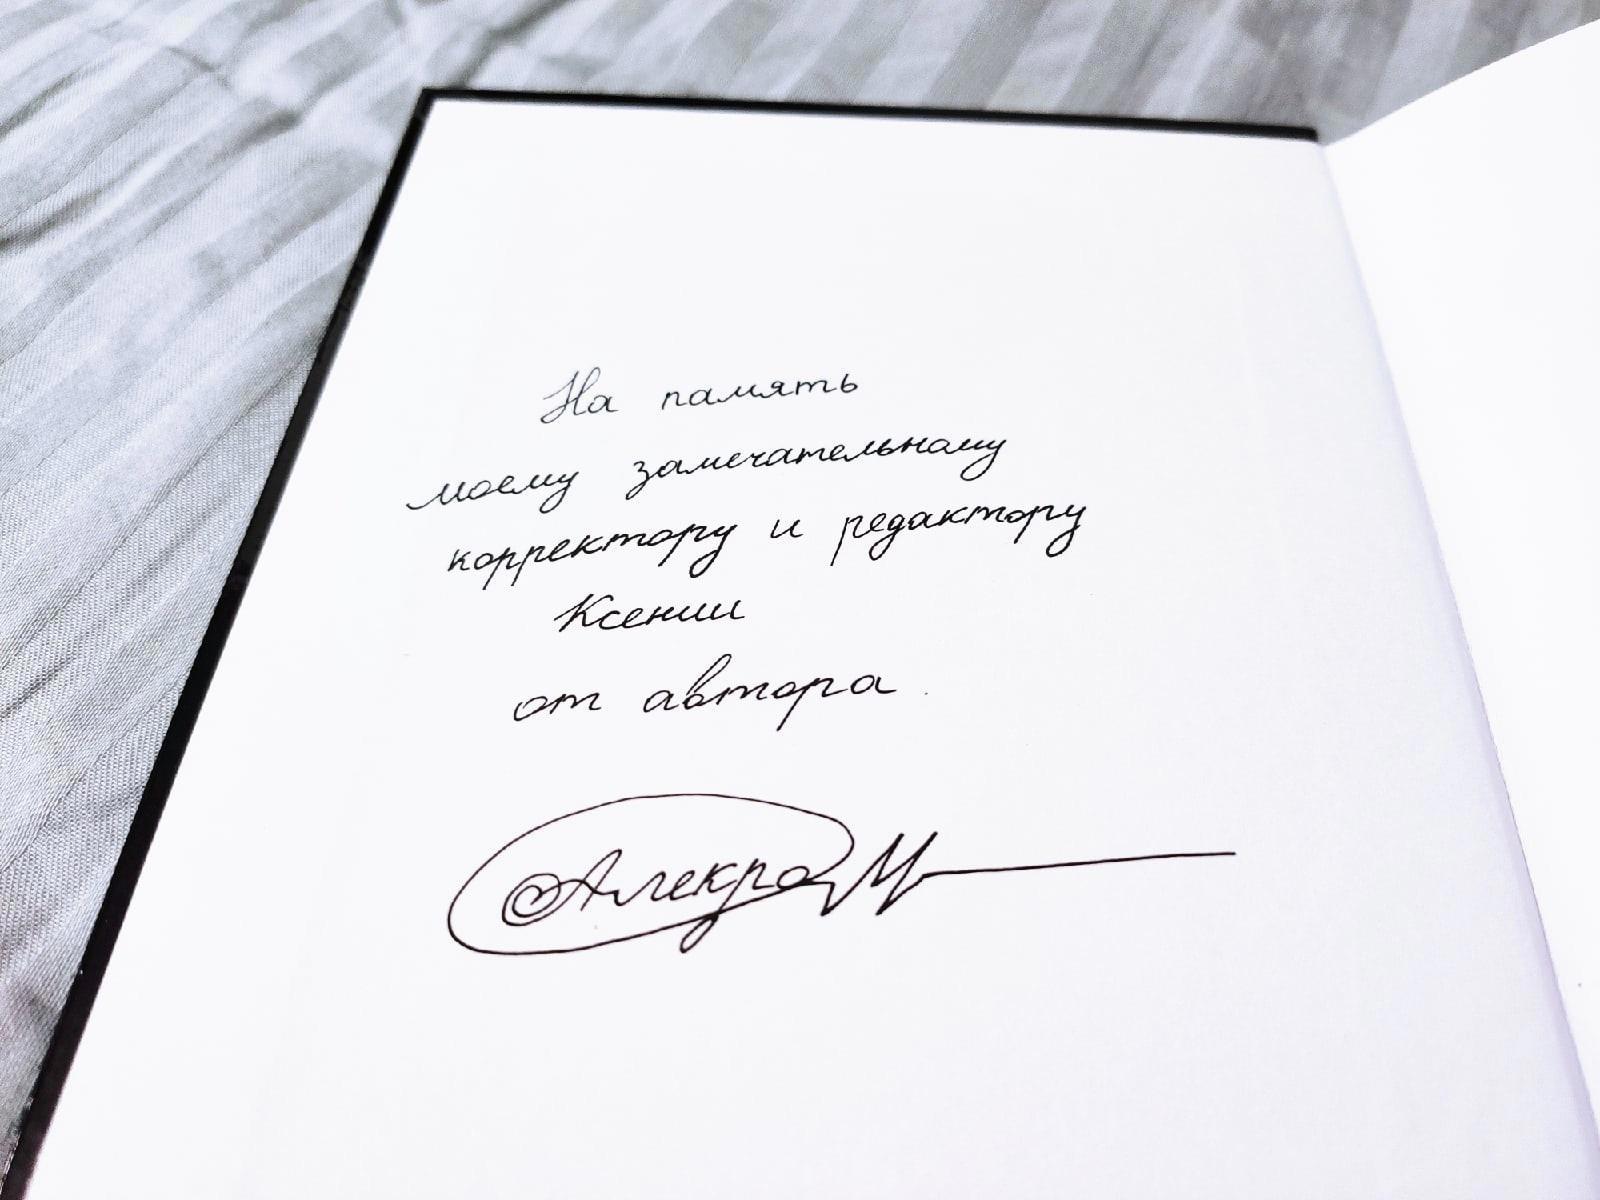 На память
моему замечательному
корректору и редактору
Ксении
от автора.
Алекра М